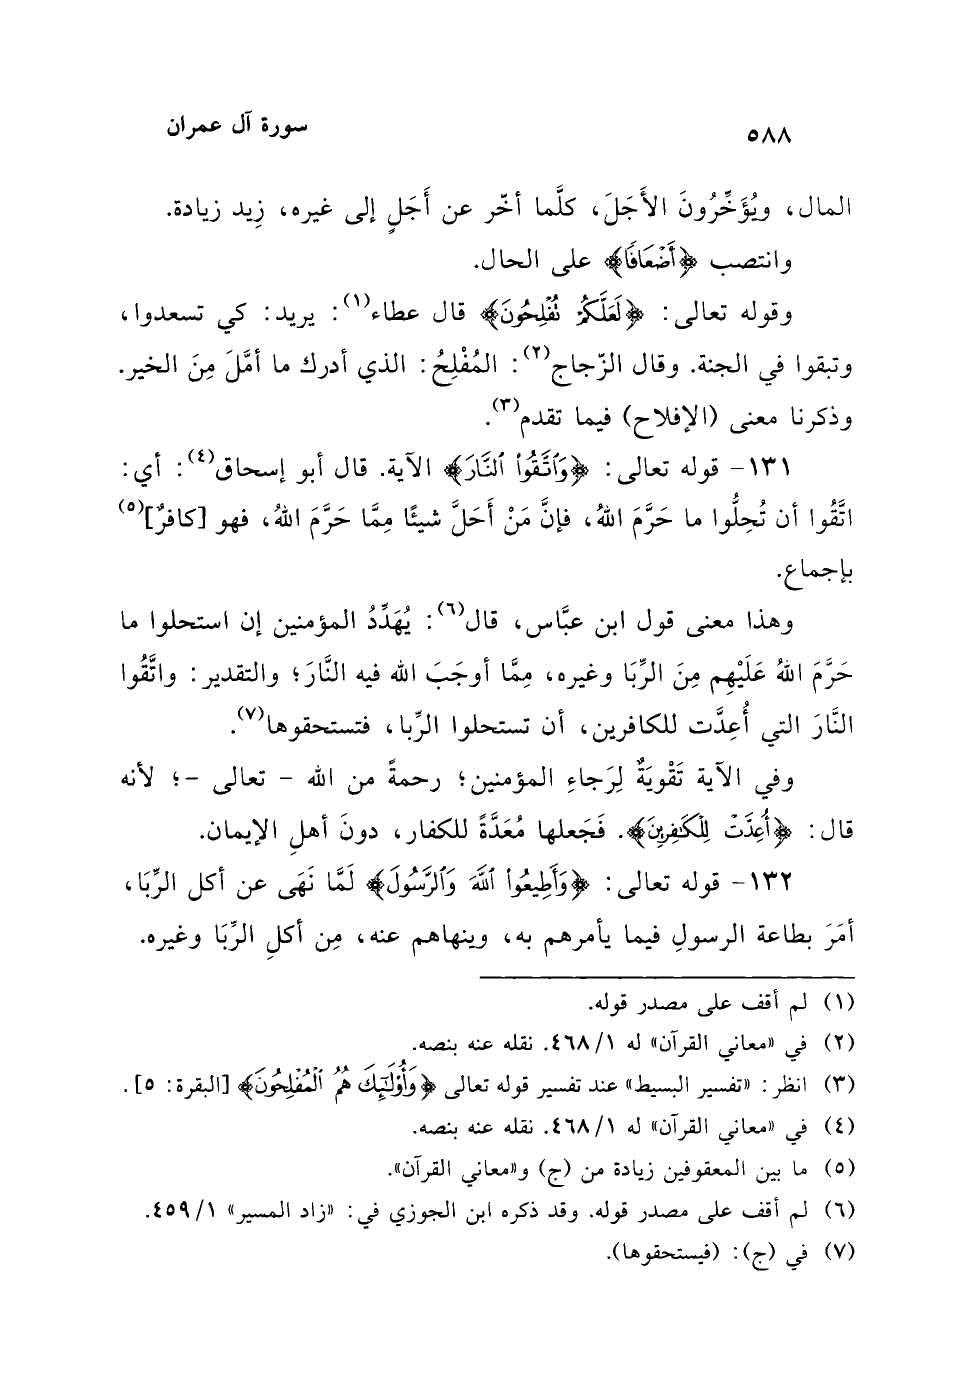 ٥٨٨ سورة آل عمران
المال، ويُؤَخِّرُونَ الأَجَلَ، كلَّما أخّر عن أَجَلٍ إلى غيره، زِيد زيادة.
وانتصب ﴿أَضْعَافًا﴾ على الحال.
وقوله تعالى: ﴿لَعَلَّكُمْ تُفْلِحُونَ﴾ قال عطاء(١): يريد: كي تسعدوا،
وتبقوا في الجنة. وقال الزّجاج(٢): المُفْلِحُ: الذي أدرك ما أمَّلَ مِنَ الخير.
وذكرنا معنى (الإفلاح) فيما تقدم(٣).
١٣١- قوله تعالى: ﴿وَٱتَّقُوا۟ ٱلنَّارَ﴾ الآية. قال أبو إسحاق(٤): أي:
اتَّقُوا أن تُحِلُّوا ما حَرَّمَ اللهُ، فإنَّ مَنْ أَحَلَّ شيئًا مِمَّا حَرَّمَ اللهُ، فهو [كافرٌ](٥)
بإجماع.
وهذا معنى قول ابن عبَّاس، قال(٦): يُهَدِّدُ المؤمنين إن استحلوا ما
حَرَّمَ اللهُ عَلَيْهِم مِنَ الرِّبَا وغيره، مِمَّا أوجَبَ الله فيه النَّارَ؛ والتقدير: واتَّقُوا
النَّارَ التي أُعِدَّت للكافرين، أن تستحلوا الرِّبا، فتستحقوها(٧).
وفي الآية تَقْوِيَةٌ لِرَجاءِ المؤمنين؛ رحمةً من الله - تعالى -؛ لأنه
قال: ﴿أُعِدَّتْ لِلْكَٰفِرِينَ﴾. فَجَعلها مُعَدَّةً للكفار، دونَ أهلِ الإيمان.
١٣٢- قوله تعالى: ﴿وَأَطِيعُوا۟ ٱللَّهَ وَٱلرَّسُولَ﴾ لَمَّا نَهَى عن أكل الرِّبَا،
أمَرَ بطاعة الرسولِ فيما يأمرهم به، وينهاهم عنه، مِن أكلِ الرِّبَا وغيره.
(١) لم أقف على مصدر قوله.
(٢) في «معاني القرآن» له ١/ ٤٦٨. نقله عنه بنصه.
(٣) انظر: «تفسير البسيط» عند تفسير قوله تعالى ﴿وَأُو۟لَٰٓئِكَ هُمُ ٱلْمُفْلِحُونَ﴾ [البقرة: ٥].
(٤) في «معاني القرآن» له ١/ ٤٦٨. نقله عنه بنصه.
(٥) ما بين المعقوفين زيادة من (ج) و«معاني القرآن».
(٦) لم أقف على مصدر قوله. وقد ذكره ابن الجوزي في: «زاد المسير» ١/ ٤٥٩.
(٧) في (ج): (فيستحقوها).